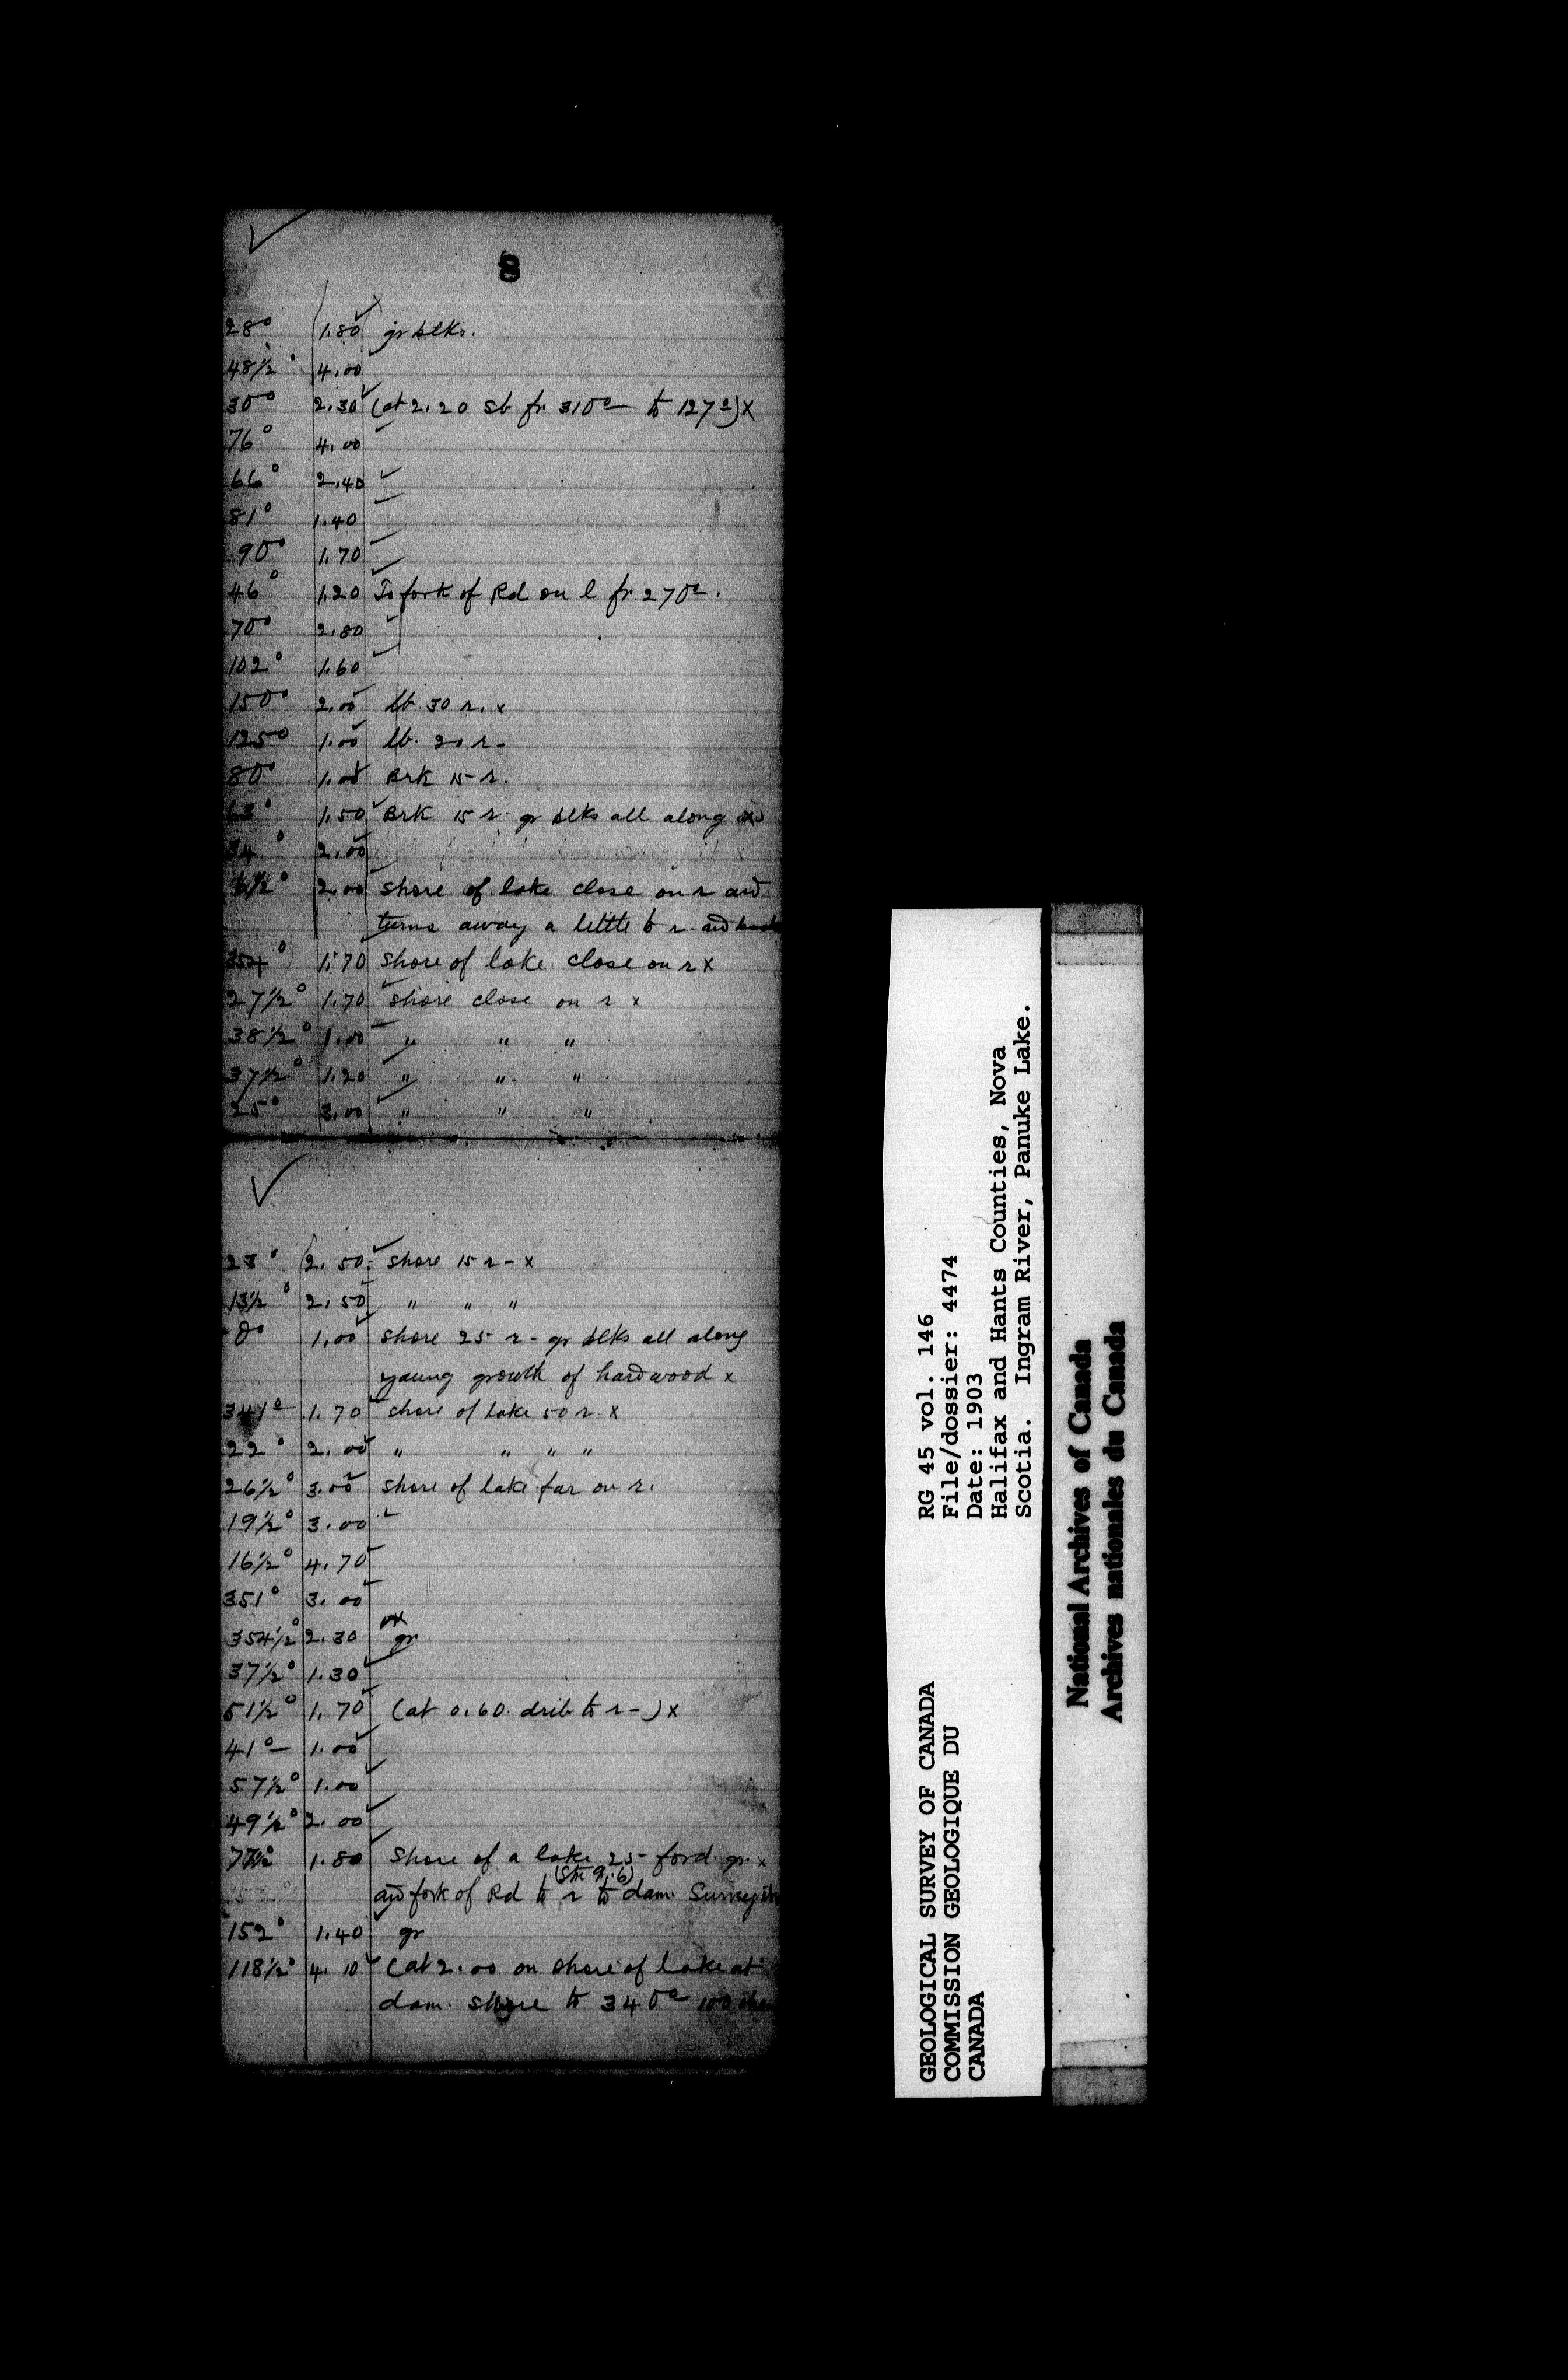 8
28° 1.80 gr blks.
48½° 4.00
30° 2.30 (at 2.20 sb fr 310° to 127°) x
76° 4.00
66° 2.40
81° 1.40
90° 1.70
46° 1.20 To fork of Rd on l fr 270°.
70° 2.80
102° 1.60
150° 2.00 lb 30 r. x
125° 1.00 lb. 20 r.
80° 1.00 Brk 15 r.
63° 1.50 Brk 15 r. gr blks all along
34° 2.00
2.00 shore of lake close on r and
turns away a little to r. and
354° 1.70 shore of lake close on r x
27½° 1.70 shore close on r x
38½° 1.00 " " "
37½° 1.20 " " "
25° 3.00 " " "
23° 2.50 shore 15 r - x
13½° 2.50 " " "
0° 1.00 shore 25 r - gr blks all along
young growth of hardwood x
341° 1.70 shore of lake 50 r. x
22° 2.00 " " " "
26½° 3.00 shore of lake far on r.
19½° 3.00
16½° 4.70
351° 3.00
354½° 2.30 gr
37½° 1.30
51½° 1.70 (at 0.60. drib to r -) x
41° 1.00
57½° 1.00
49½° 2.00
77½° 1.80 Shore of a lake 25 ford. gr x
and fork of Rd to r to dam. Survey
152° 1.40 gr
118½° 4.10 (at 2.00 on shore of lake at
dam. shore to 340° 100
GEOLOGICAL SURVEY OF CANADA
COMMISSION GEOLOGIQUE DU
CANADA
RG 45 vol. 146
File/dossier: 4474
Date: 1903
Halifax and Hants Counties, Nova
Scotia. Ingram River, Panuke Lake.
National Archives of Canada
Archives nationales du Canada